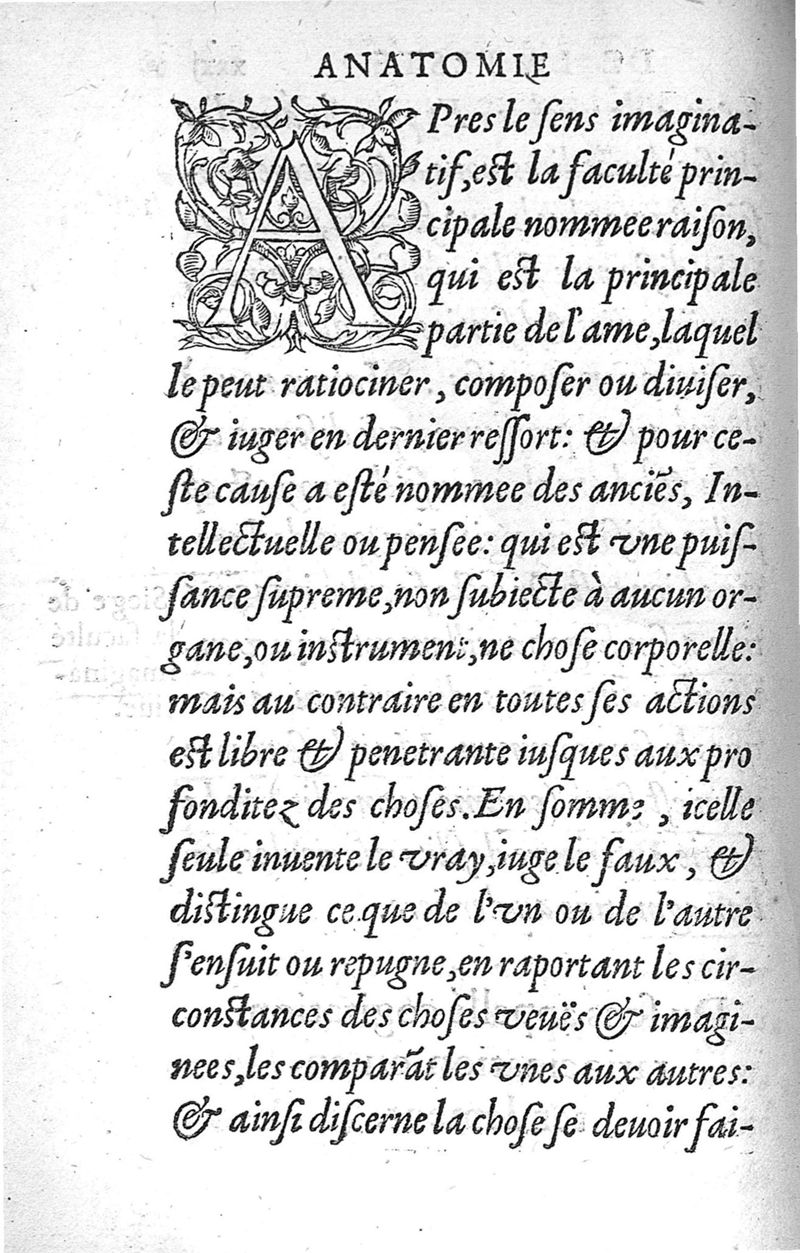 ANATOMIE
APres le ſens imagina-
tif, eſt la faculté prin-
cipale nommee raiſon,
qui eſt la principale
partie de l'ame, laquel
le peut ratiociner, compoſer ou diuiſer,
& iuger en dernier reſſort: & pour ce-
ſte cauſe a eſté nommee des anciẽs, In-
tellectuelle ou penſee: qui eſt vne puiſ-
ſance ſupreme, non ſubiecte à aucun or-
gane, ou inſtrument, ne choſe corporelle:
mais au contraire en toutes ſes actions
eſt libre & penetrante iuſques aux pro
fonditez des choſes. En ſomme, icelle
ſeule inuente le vray, iuge le faux, &
diſtingue ce que de l'vn ou de l'autre
s'enſuit ou repugne, en raportant les cir-
conſtances des choſes veuës & imagi-
nees, les comparãt les vnes aux autres:
& ainſi diſcerne la choſe ſe deuoir fai-